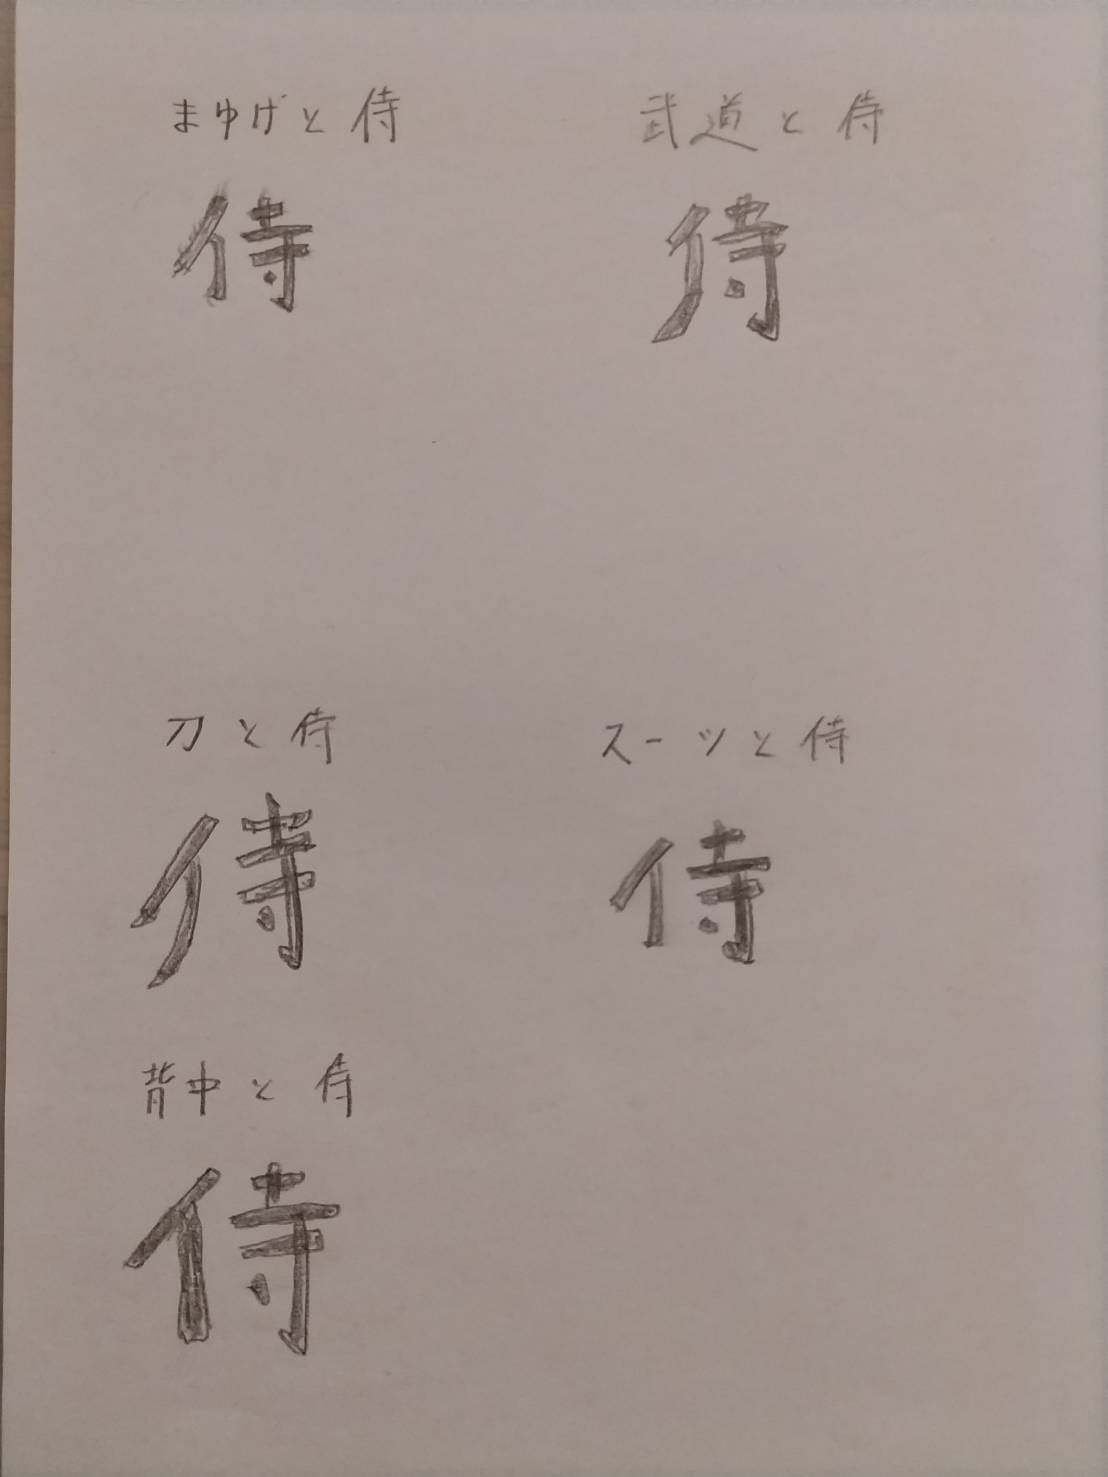 まゆげと侍
武道と侍
侍
侍
刀と侍
スーツと侍
侍
侍
背中と侍
侍